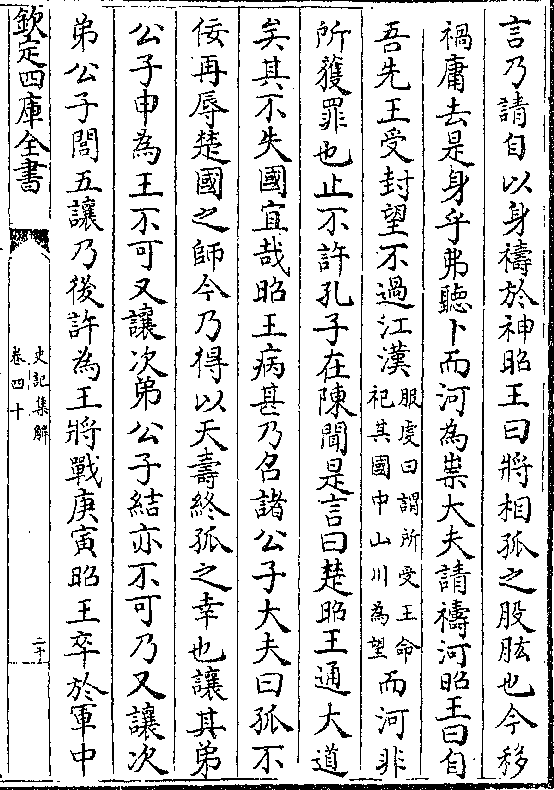 言乃請自以身禱於神昭王曰將相孤之股肱也今移
禍庸去是身乎弗聽卜而河為祟大夫請禱河昭王曰自
吾先王受封望不過江漢服虔曰謂所受王命祀其國中山川為望而河非
所獲罪也止不許孔子在陳聞是言曰楚昭王通大道
矣其不失國宜哉昭王病甚乃召諸公子大夫曰孤不
佞再辱楚國之師今乃得以天壽終孤之幸也讓其弟
公子申為王不可又讓次弟公子結亦不可乃又讓次
弟公子閭五讓乃後許為王將戰庚寅昭王卒於軍中
欽定四庫全書
史記集解
卷四十
二十